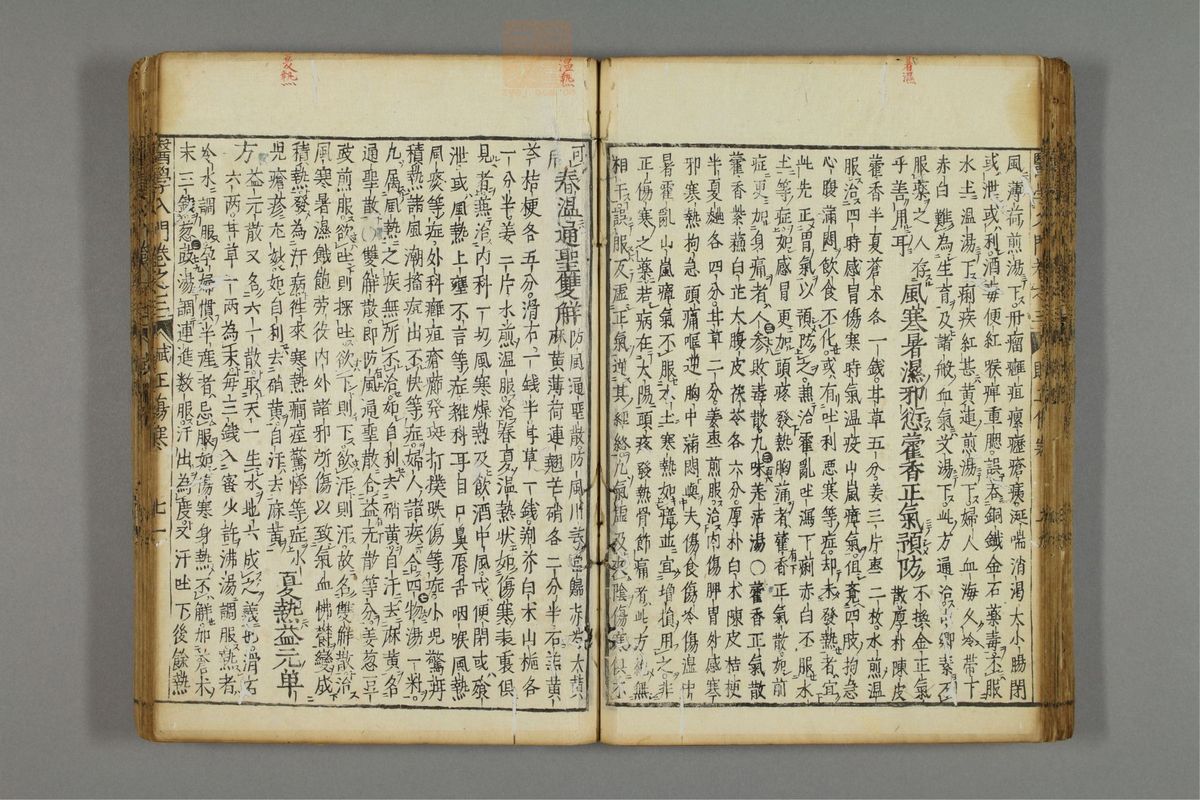 暑濕
風薄荷煎湯下丹瘤癰疽瘰癧瘡瘍涎喘消渴大小腸閉
或泄或利消毒便紅猴痺重腮誤吞銅鐵金石藥毒不服
水土溫湯下痢疾紅甚黃連煎湯下婦人血海久冷帶下
赤白難為生育及諸般血氣艾湯下此方通治
服藥之人存 風寒暑濕邪愆藿香正氣預防 不換金正氣
乎善用耳 散厚朴陳皮
藿香半夏蒼朮各一錢甘草五分姜三片棗二枚水煎溫
服治四時感冒傷寒時氣溫疫山嵐瘴氣但四肢拘急
心腹滿悶飲食不化或有吐利惡寒等症却未發熱者宜
此先正胃氣以預防之熱治霍亂吐瀉下痢赤白不服水
土等症如感冒更加頭疼發熱胸滿者藿香正氣散如前
症更加身痛者人參敗毒散九味羌活湯○藿香正氣散
藿香紫蘇白芷大腹皮茯苓各六分厚朴白朮陳皮桔梗
半夏麯各四分甘草二分姜棗煎服治內傷脾胃外感寒
邪寒熱拘急頭痛嘔逆胸中滿悶與夫傷食傷冷傷濕中
暑霍亂山嵐瘴氣不服水土寒熱如瘧並宜增損用之非
正傷寒之藥若病在太陽頭疼發熱骨節痛者此方絕無
相干誤服反虛正氣逆其經絡凡氣虛及夾陰傷寒俱不
溫熱
可 春溫通聖雙解 防風通聖散防風川芎當歸赤芍大黃
麻黃薄荷連翹芒硝各二分半石膏黃
芩桔梗各五分滑石一錢半甘草一錢荊芥白朮山梔各
一分半姜三片水煎溫服治春夏溫熱狀如傷寒表裏俱
見者燕治內科一切風寒燥熱及飲酒中風或便閉或飧
泄或風熱上壅不言等症雜科耳目口鼻唇舌咽喉風熱
風痰等症外科癰疽瘡癤發斑打撲跌傷等症小兒驚疳
積熱諸風潮搐痘出不快等症婦人諸疾合四物湯一料
凡屬風熱之疾無所不治如自利去硝黃自汗去麻黃名
通聖散○雙解散即防風通聖散合益元散等分姜葱豆
豉前服欲吐則探吐欲下則下欲汗則汗故名雙解散治
風寒暑濕饑飽勞役內外諸邪所傷以致氣血怫鬱變成
積熱發為汗病往來寒熱癇痙驚悸等症小
兒瘡疹尤妙如自利去硝黃自汗去麻黃 夏熱益元單
方 益元散又名六一散取天一生水地六成之義也滑石
六兩甘草一兩為末每三錢入蜜少許沸湯調服熱者
冷水調服孕婦慣半產者忌服如傷寒身熱不解加蒼朮
末三錢葱豉湯調連進數服汗出為度又汗吐下後餘熱
醫學入門卷之三
正傷寒
七一
夏熱